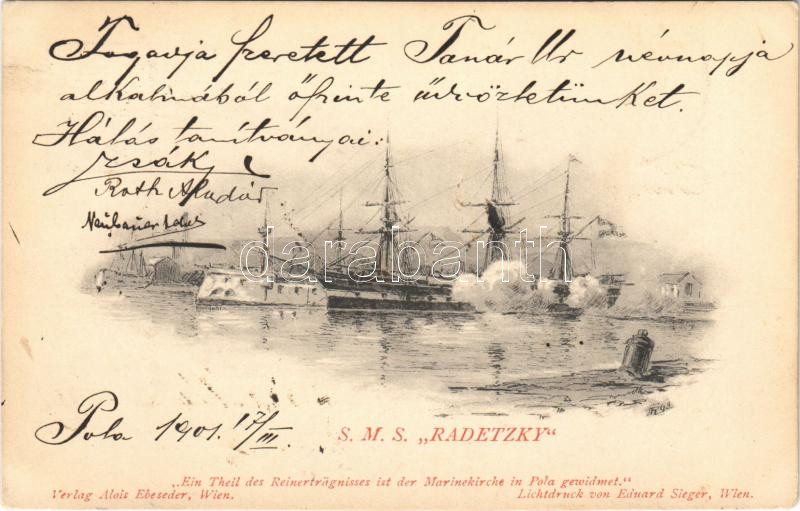 Fogadja szeretett Tanár Ur névnapja
alkalmából őszinte üdvözletünket.
Hálás tanítványai:
Zsák
Roth Aladár
Neubauer
darabanth.com
Pola 1901. 17/III.
S. M. S. „RADETZKY“
„Ein Theil des Reinerträgnisses ist der Marinekirche in Pola gewidmet.“
Verlag Alois Ebeseder, Wien.
Lichtdruck von Eduard Sieger, Wien.